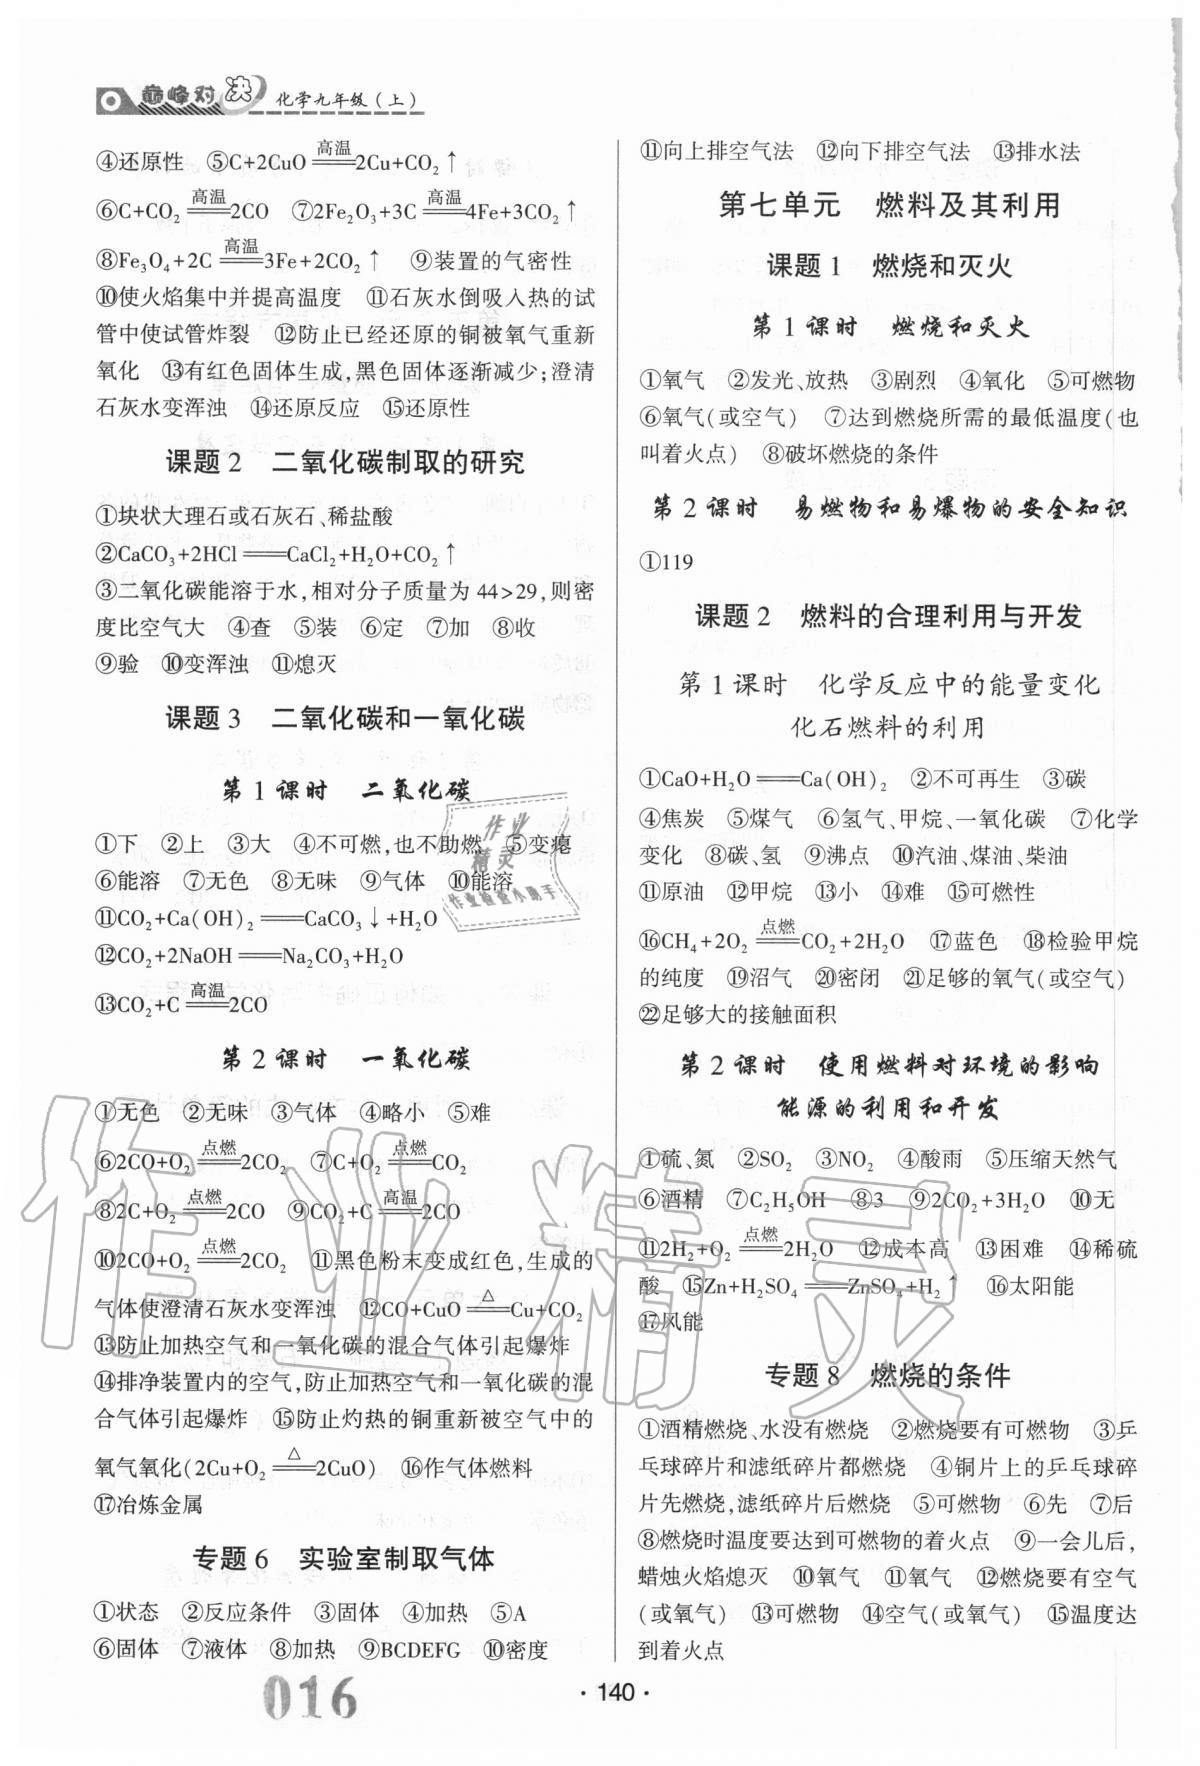 巅峰对决 化学九年级(上)
④还原性 ⑤C+2CuO 高温═══ 2Cu+CO₂↑
⑥C+CO₂ 高温═══ 2CO ⑦2Fe₂O₃+3C 高温═══ 4Fe+3CO₂↑
⑧Fe₃O₄+2C 高温═══ 3Fe+2CO₂↑ ⑨装置的气密性
⑩使火焰集中并提高温度 ⑪石灰水倒吸入热的试
管中使试管炸裂 ⑫防止已经还原的铜被氧气重新
氧化 ⑬有红色固体生成,黑色固体逐渐减少;澄清
石灰水变浑浊 ⑭还原反应 ⑮还原性
课题2 二氧化碳制取的研究
①块状大理石或石灰石、稀盐酸
②CaCO₃+2HCl═══CaCl₂+H₂O+CO₂↑
③二氧化碳能溶于水,相对分子质量为44>29,则密
度比空气大 ④查 ⑤装 ⑥定 ⑦加 ⑧收
⑨验 ⑩变浑浊 ⑪熄灭
课题3 二氧化碳和一氧化碳
第1课时 二氧化碳
①下 ②上 ③大 ④不可燃,也不助燃 ⑤变瘪
⑥能溶 ⑦无色 ⑧无味 ⑨气体 ⑩能溶
⑪CO₂+Ca(OH)₂═══CaCO₃↓+H₂O
⑫CO₂+2NaOH═══Na₂CO₃+H₂O
⑬CO₂+C 高温═══ 2CO
第2课时 一氧化碳
①无色 ②无味 ③气体 ④略小 ⑤难
⑥2CO+O₂ 点燃═══ 2CO₂ ⑦C+O₂ 点燃═══ CO₂
⑧2C+O₂ 点燃═══ 2CO ⑨CO₂+C 高温═══ 2CO
⑩2CO+O₂ 点燃═══ 2CO₂ ⑪黑色粉末变成红色,生成的
气体使澄清石灰水变浑浊 ⑫CO+CuO △═══ Cu+CO₂
⑬防止加热空气和一氧化碳的混合气体引起爆炸
⑭排净装置内的空气,防止加热空气和一氧化碳的混
合气体引起爆炸 ⑮防止灼热的铜重新被空气中的
氧气氧化(2Cu+O₂ △═══ 2CuO) ⑯作气体燃料
⑰冶炼金属
专题6 实验室制取气体
①状态 ②反应条件 ③固体 ④加热 ⑤A
⑥固体 ⑦液体 ⑧加热 ⑨BCDEFG ⑩密度
⑪向上排空气法 ⑫向下排空气法 ⑬排水法
第七单元 燃料及其利用
课题1 燃烧和灭火
第1课时 燃烧和灭火
①氧气 ②发光、放热 ③剧烈 ④氧化 ⑤可燃物
⑥氧气(或空气) ⑦达到燃烧所需的最低温度(也
叫着火点) ⑧破坏燃烧的条件
第2课时 易燃物和易爆物的安全知识
①119
课题2 燃料的合理利用与开发
第1课时 化学反应中的能量变化
化石燃料的利用
①CaO+H₂O═══Ca(OH)₂ ②不可再生 ③碳
④焦炭 ⑤煤气 ⑥氢气、甲烷、一氧化碳 ⑦化学
变化 ⑧碳、氢 ⑨沸点 ⑩汽油、煤油、柴油
⑪原油 ⑫甲烷 ⑬小 ⑭难 ⑮可燃性
⑯CH₄+2O₂ 点燃═══ CO₂+2H₂O ⑰蓝色 ⑱检验甲烷
的纯度 ⑲沼气 ⑳密闭 ㉑足够的氧气(或空气)
㉒足够大的接触面积
第2课时 使用燃料对环境的影响
能源的利用和开发
①硫、氮 ②SO₂ ③NO₂ ④酸雨 ⑤压缩天然气
⑥酒精 ⑦C₂H₅OH ⑧3 ⑨2CO₂+3H₂O ⑩无
⑪2H₂+O₂ 点燃═══ 2H₂O ⑫成本高 ⑬困难 ⑭稀硫
酸 ⑮Zn+H₂SO₄═══ZnSO₄+H₂↑ ⑯太阳能
⑰风能
专题8 燃烧的条件
①酒精燃烧、水没有燃烧 ②燃烧要有可燃物 ③乒
乓球碎片和滤纸碎片都燃烧 ④铜片上的乒乓球碎
片先燃烧,滤纸碎片后燃烧 ⑤可燃物 ⑥先 ⑦后
⑧燃烧时温度要达到可燃物的着火点 ⑨一会儿后,
蜡烛火焰熄灭 ⑩氧气 ⑪氧气 ⑫燃烧要有空气
(或氧气) ⑬可燃物 ⑭空气(或氧气) ⑮温度达
到着火点
作业精灵
作业
精灵
作业检查小助手
016
·140·